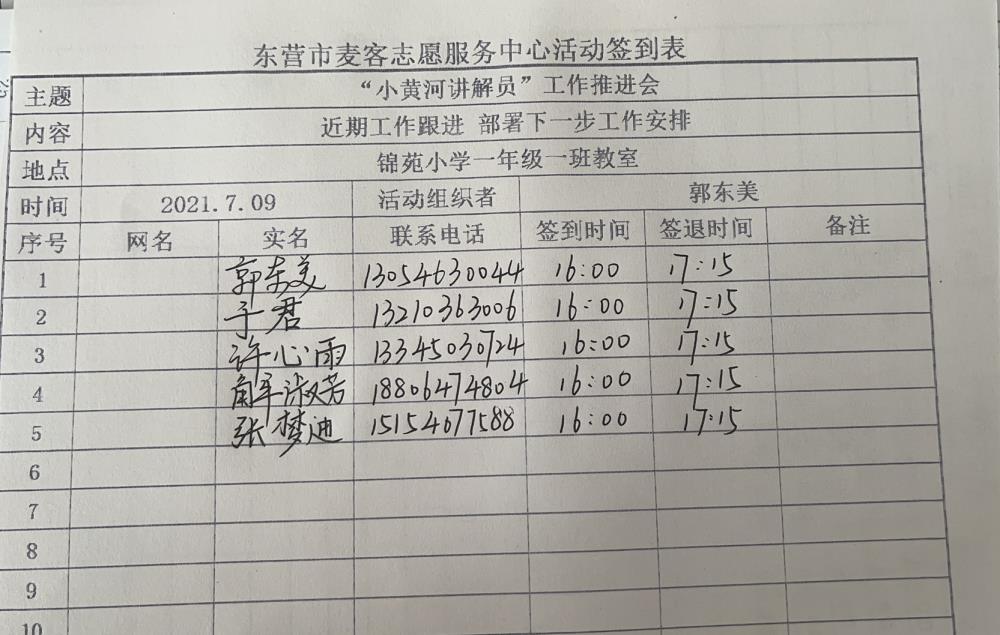 东营市麦客志愿服务中心活动签到表
主题 “小黄河讲解员”工作推进会
内容 近期工作跟进 部署下一步工作安排
地点 锦苑小学一年级一班教室
时间 2021.7.09 活动组织者 郭东美
序号 网名 实名 联系电话 签到时间 签退时间 备注
1 郭东美 13054630044 16:00 17:15
2 于君 13210363006 16:00 17:15
3 许心雨 13345030724 16:00 17:15
4 淑芳 18806474804 16:00 17:15
5 张梦迪 15154677588 16:00 17:15
6
7
8
9
10